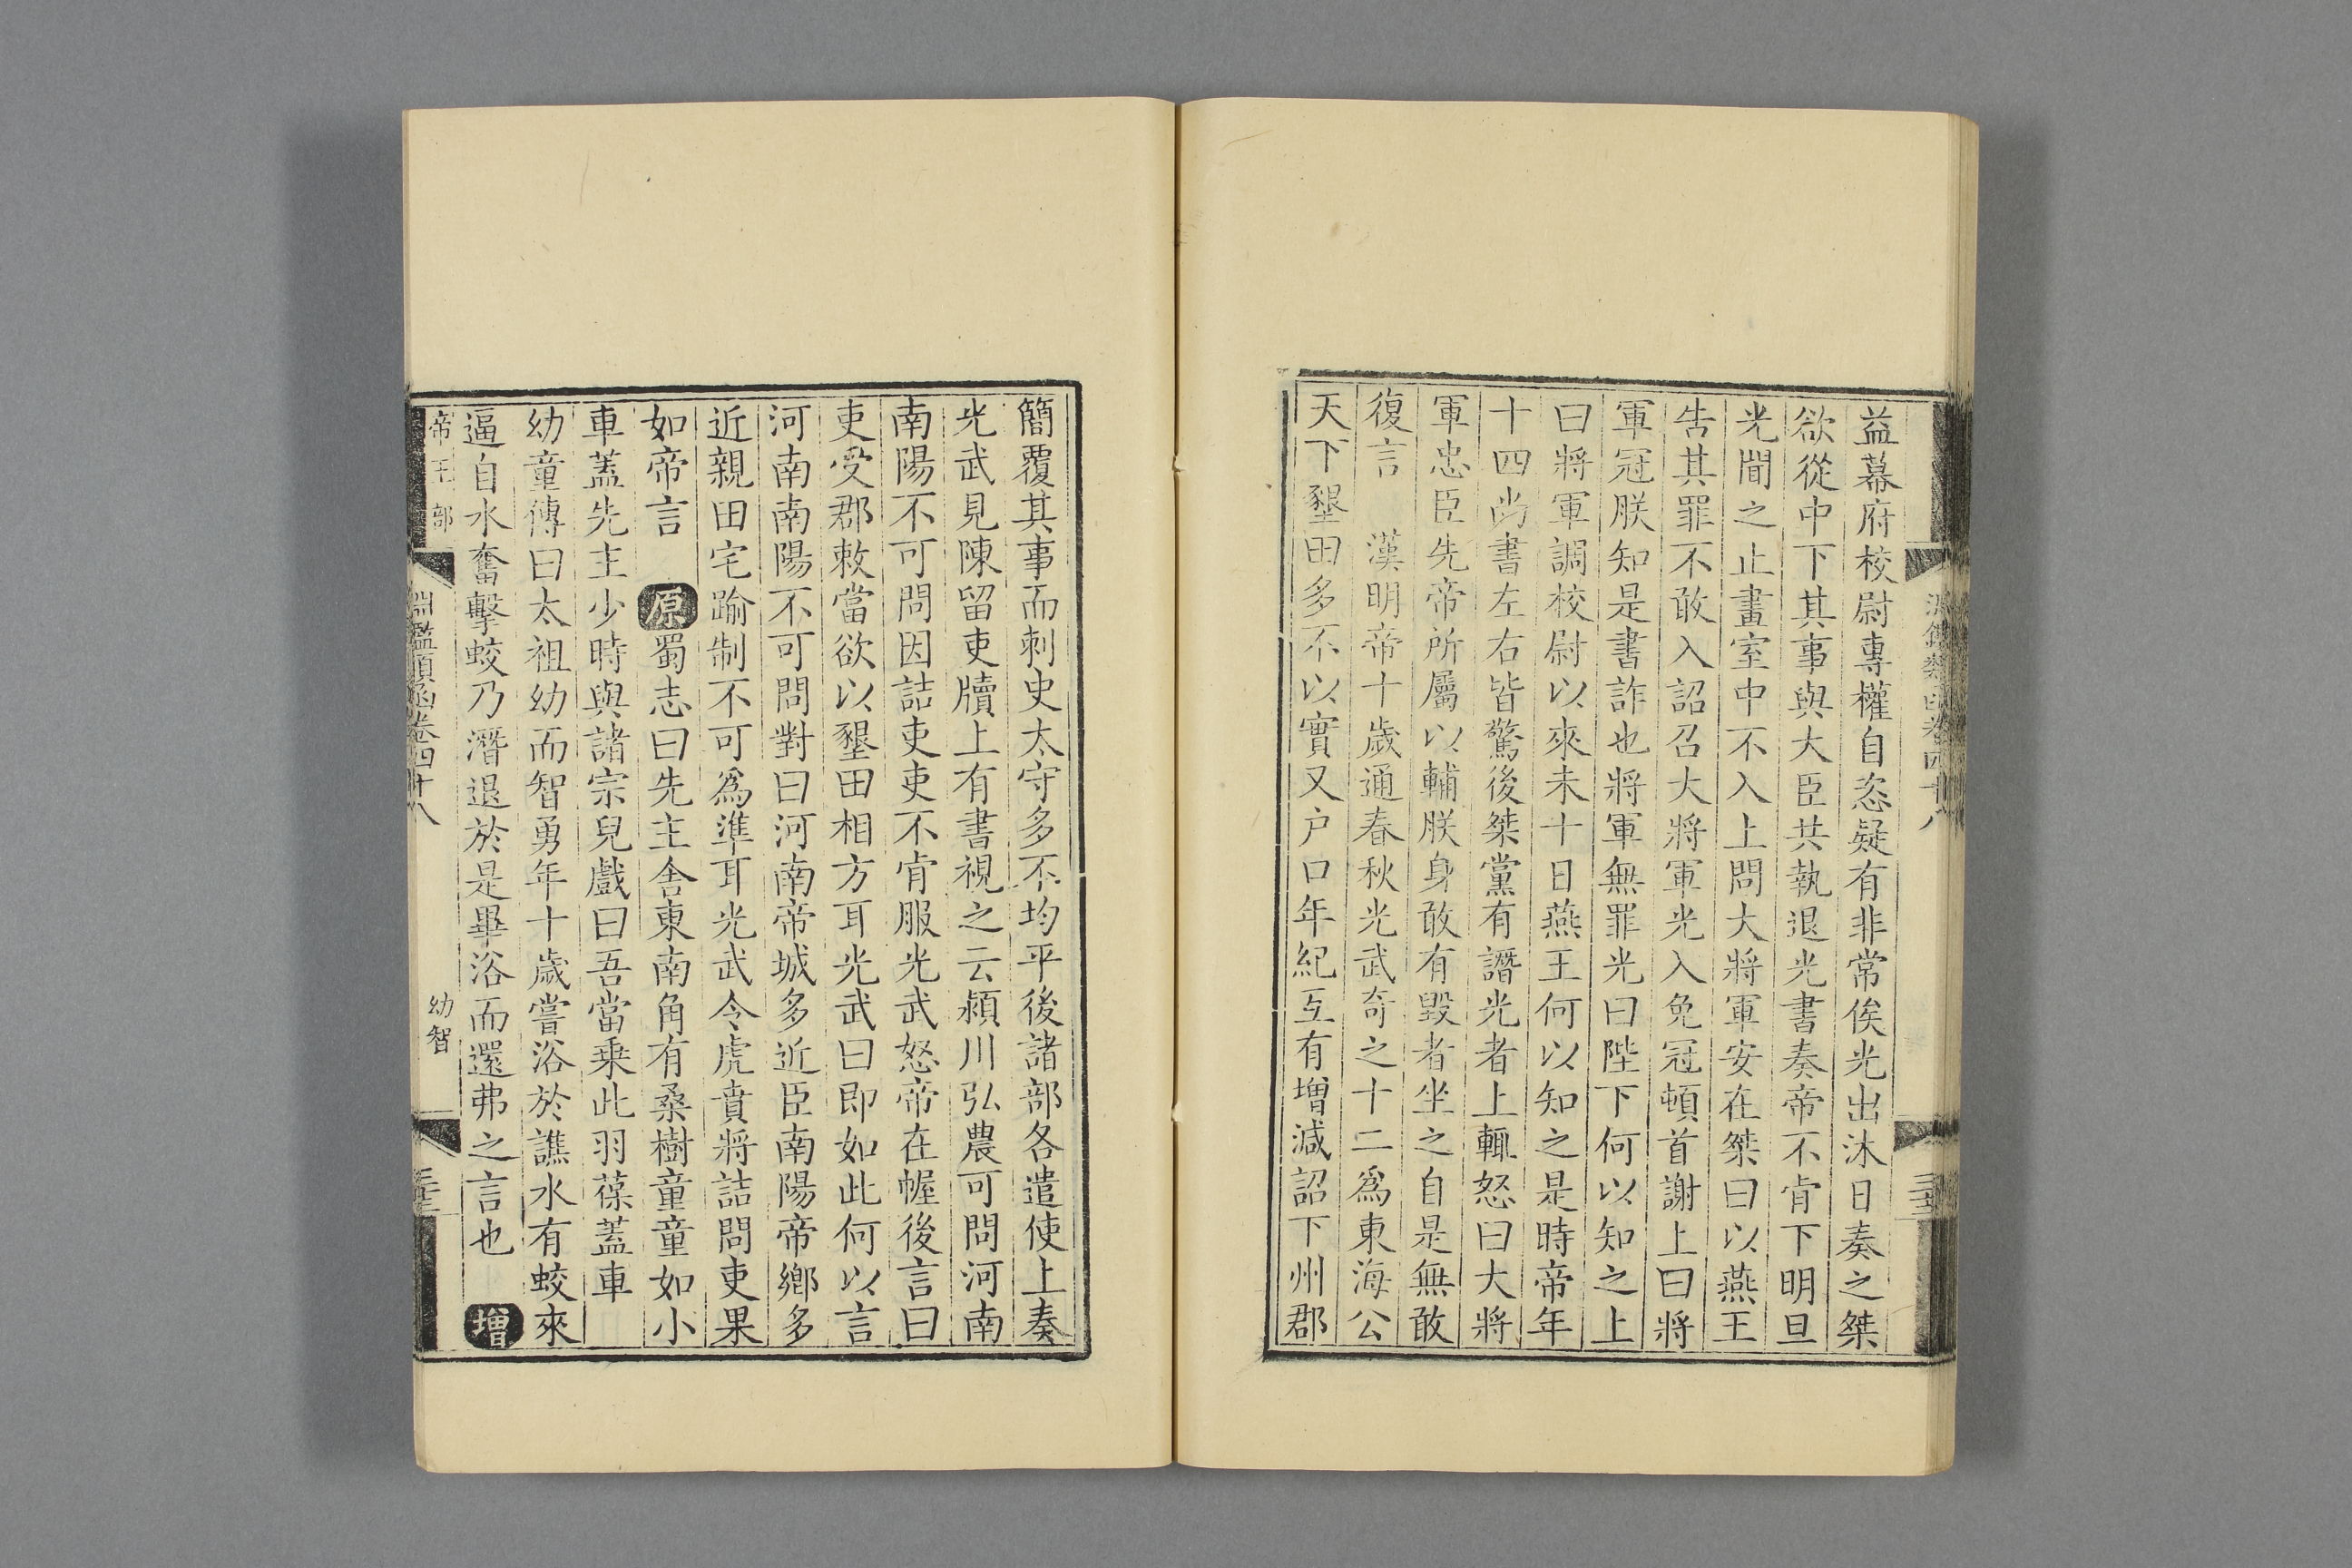 益幕府校尉專權自恣疑有非常俟光出沐日奏之桀
欲從中下其事與大臣共執退光書奏帝不肯下明旦
光聞之止畫室中不入上問大將軍安在桀曰以燕王
告其罪不敢入詔召大將軍光入免冠頓首謝上曰將
軍冠朕知是書詐也將軍無罪光曰陛下何以知之上
曰將軍調校尉以來未十日燕王何以知之是時帝年
十四尚書左右皆驚後桀黨有譖光者上輒怒曰大將
軍忠臣先帝所屬以輔朕身敢有毀者坐之自是無敢
復言　漢明帝十歲通春秋光武奇之十二為東海公
天下墾田多不以實又户口年紀互有增減詔下州郡
簡覆其事而刺史太守多不均平後諸部各遣使上奏
光武見陳留吏牘上有書視之云潁川弘農可問河南
南陽不可問因詰吏吏不肯服光武怒帝在幄後言曰
吏受郡敕當欲以墾田相方耳光武曰即如此何以言
河南南陽不可問對曰河南帝城多近臣南陽帝鄉多
近親田宅踰制不可為準耳光武令虎賁將詰問吏果
如帝言　原蜀志曰先主舍東南角有桑樹童童如小
車蓋先主少時與諸宗兒戲曰吾當乗此羽葆蓋車
幼童傳曰太祖幼而智勇年十歲嘗浴於譙水有蛟來
逼自水奮擊蛟乃潛退於是畢浴而還弗之言也　增
帝王部　淵鑑類函卷四十八　幼智